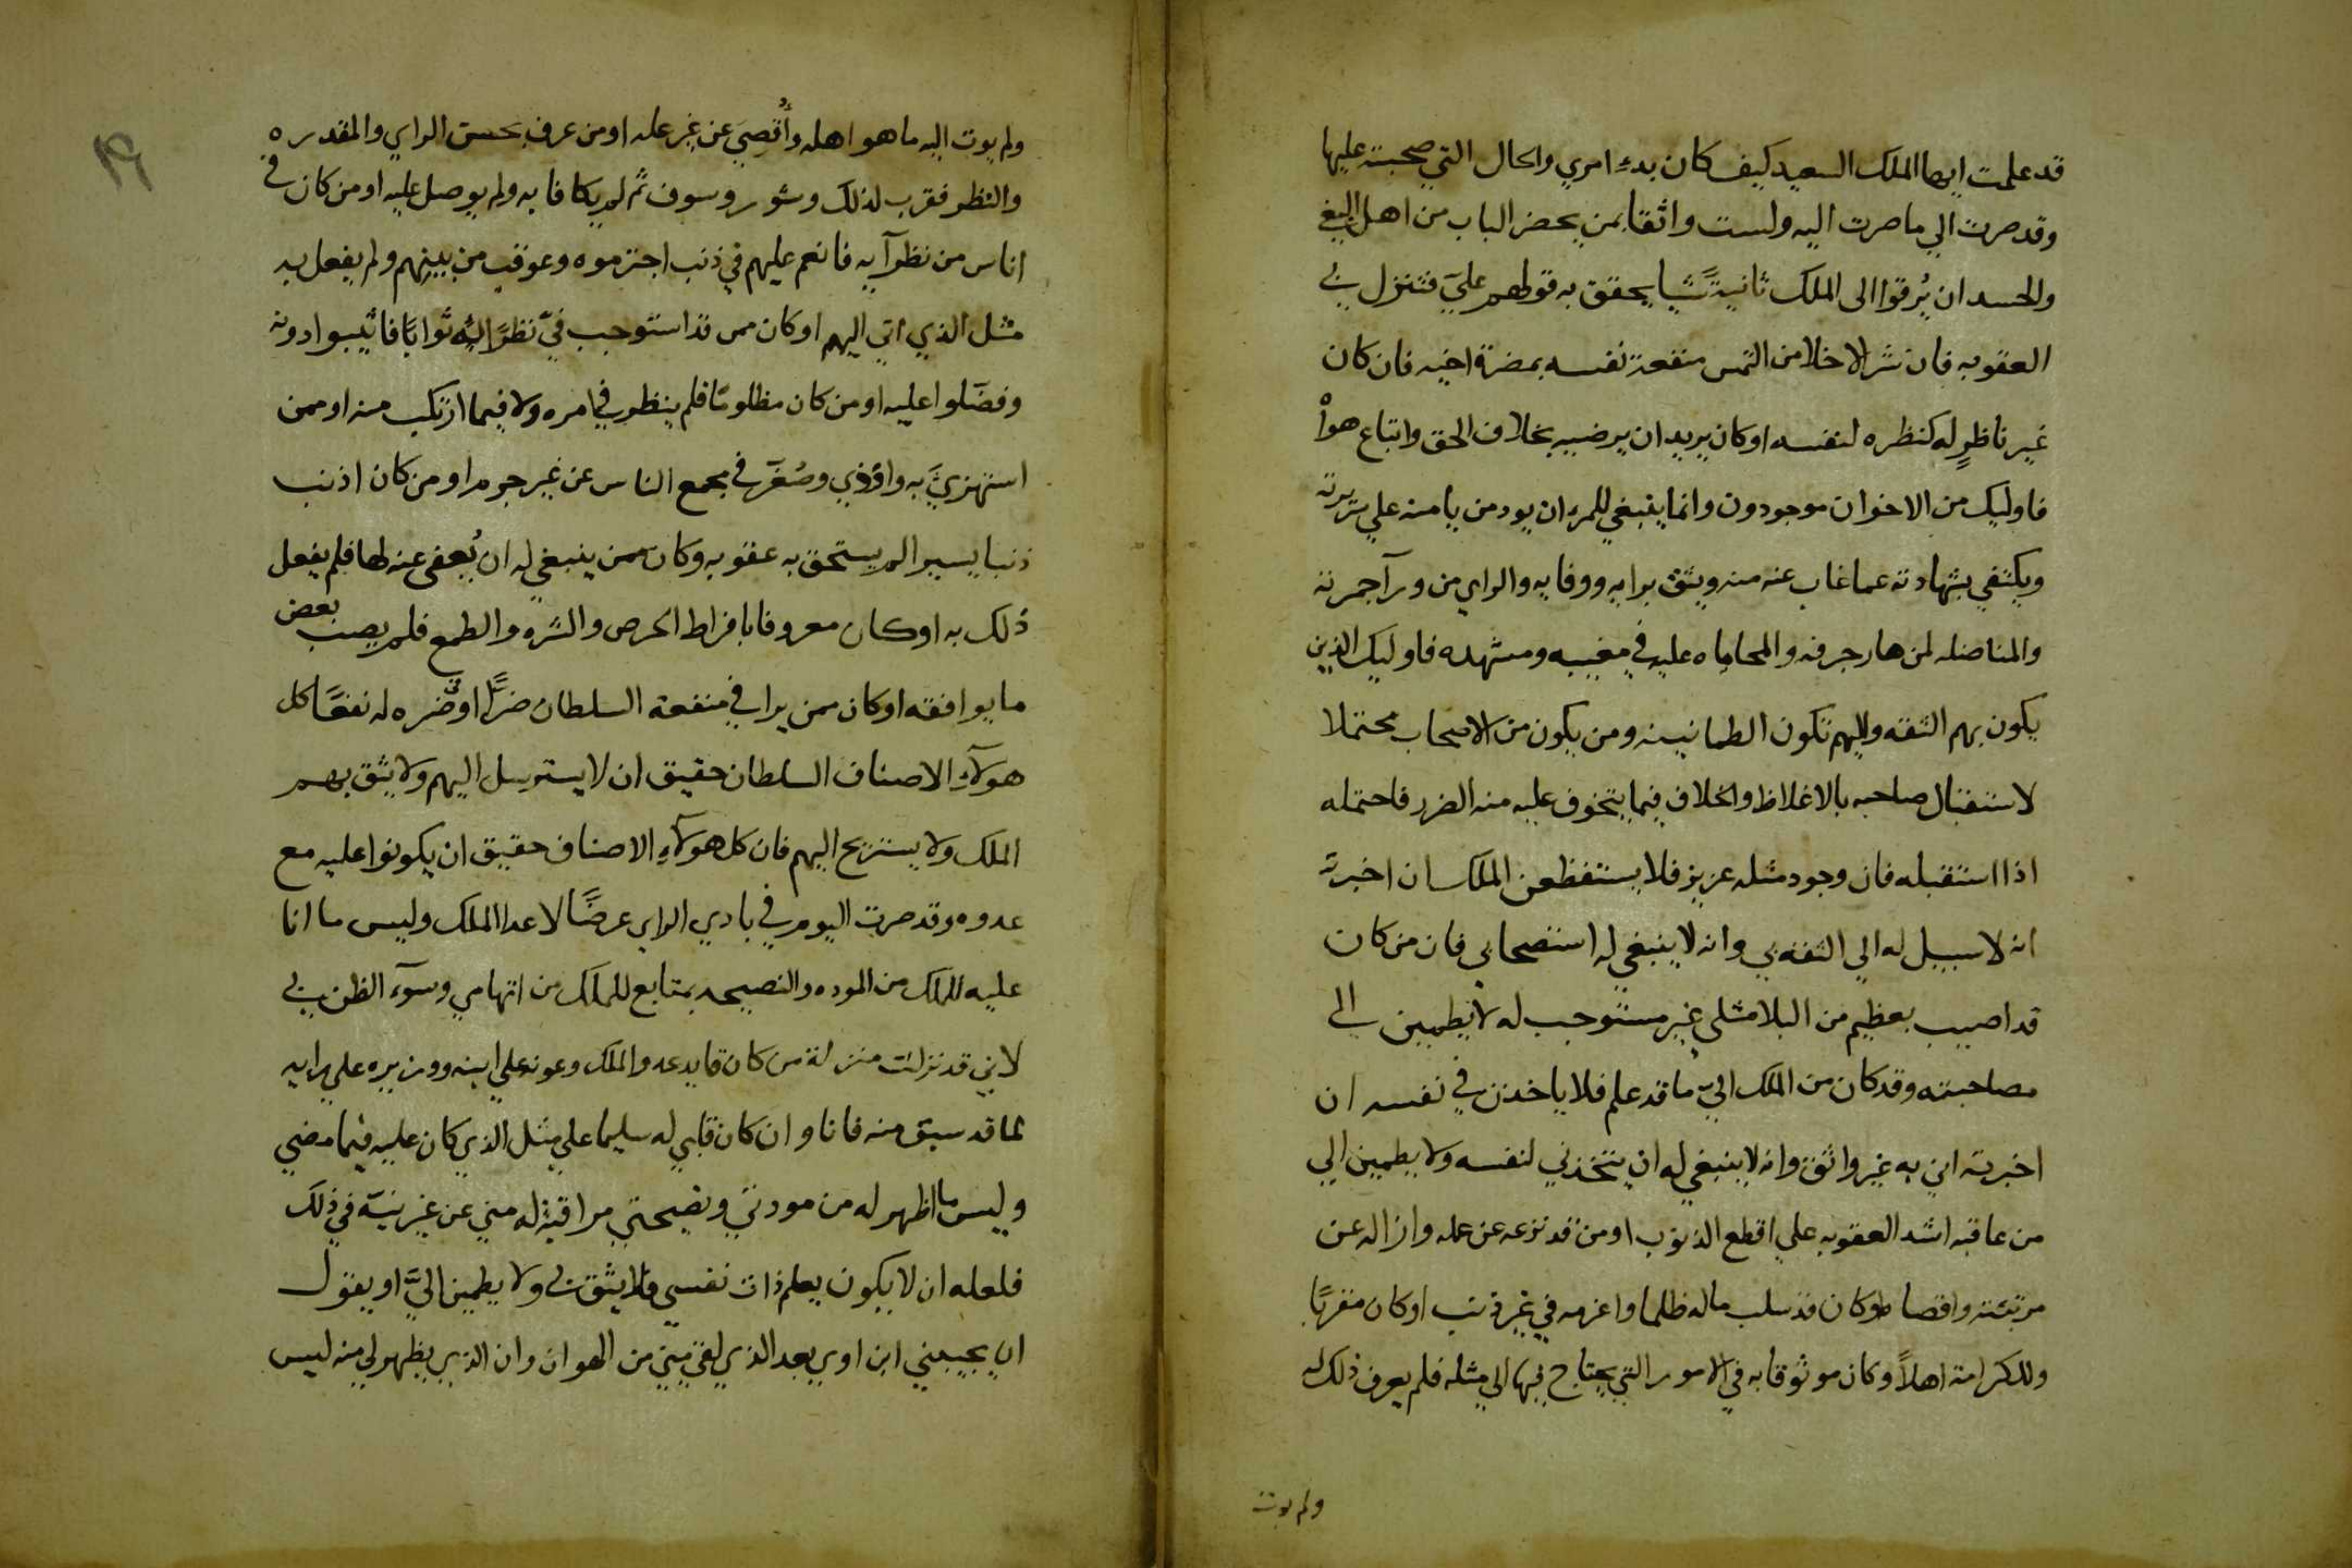 قد علمت ايها الملك السعيد كيف كان بدء امري والحال التي صحبته عليها
وقد صرت الي ما صرت اليه ولست واثقا بمن يحضر الباب من اهل البغي
والحسد ان يُرقوا الى الملك ثانيةً شيا يحقق به قولهم عليَّ فتنزل بي
العقوبه فان شر الاخلا من التمس منفعة نفسه بمضرة اخيه فان كان
غير ناظرٍ له كنظره لنفسه او كان يريد ان يرضيه بخلاف الحق واتباع هواْ
فاوليك من الاخوان موجودون وانما ينبغي للمرء ان يود من يامنه علي سريرته
ويكتفي بشهادته عما غاب عنه منه ويثق برايه ووفايه والراي من ورآ جمرته
والمناضله لمن هار جرفه والمحاباه عليه في مغيبه ومشهده فاوليك الذين
يكون بهم الثقه واليهم تكون الطمانينه ومن يكون من الاصحاب محتملا
لاستقبال صاحبه بالاغلاظ والخلاف فيما يتخوف عليه منه الضرر فاحتمله
اذا استقبله فان وجود مثله عزيز فلا يستفظعن الملك ان اخبرته
انه لا سبيل له الي الثقه بي وانه لا ينبغي له استنصحابي فان من كان
قد اصيب بعظيم من البلا مثلي غير مستوجب له لا يطمين الى
مصاحبته وقد كان من الملك اليّ ما قد علم فلا ياخذن في نفسه ان
اخبرته اني به غير واثق وانه لا ينبغي له ان يتخذني لنفسه ولا يطمين الي
من عاقبه اشد العقوبه علي اقطع الذنوب او من قد نزعه عن عمله وازاله عن
مرتبته واقصا او كان قد سلب ماله ظلما واغرمه في غير ذنب او كان مقربًا
وللكرامة اهلاً وكان موثوقا به في الامور التي يحتاج فيها الي مثله فلم يعرف ذلك له
ولم يوت
ولم يوت اليه ما هو اهله وأُقصِيَ عن غير عله او من عرف بحسن الراي والمقدره
والنظر فقرب لذلك وشور وسوف ثم لم يكافا به ولم يوصل عليه او من كان في
اناس من نظرآيه فانعم عليهم في ذنب اجترموه وعوقب من بينهم ولم يفعل به
مثل الذي اتي اليهم او كان ممن قد استوجب في نظرايه ثوابًا فاثيبوا دونه
وفضّلوا عليه او من كان مظلومًا فلم ينظر في امره ولا فيما ارتكب منه او ممن
استهزيَ به واوذي وصُغِّر في مجمع الناس عن غير جرم او من كان اذنب
ذنبا يسيرا لم يستحق به عقوبه وكان ممن ينبغي له ان يُعفى عنه لها فلم يفعل
ذلك به او كان معروفا بافراط الحرص والشره والطمع فلم يصب بعض
ما يوافقه او كان ممن يرا في منفعة السلطان ضرًّا او في ضره له نفعًا كل
هولآءِ الاصناف السلطان حقيق ان لا يسترسل اليهم ولا يثق بهم
الملك ولا يستريح اليهم فان كل هولآءِ الاصناف حقيق ان يكونوا عليه مع
عدوه وقد صرت اليوم في بادي الراي عرضًا لاعدا الملك وليس ما انا
عليه للملك من الموده والنصيحه بمتابع للملك من اتهامي وسوٓء الظن بي
لاني قد نزلت منزلة من كان قايد عدو الملك وعونه علي ابنه ووزيره علي رايه
لما قد سبق منه فانا وان كان قلبي له سليما علي مثل الذي كان عليه فيما مضي
وليس ما اظهر له من مودتي ونصيحتي مراقبة له مني عن غير نيّة في ذلك
فلعله ان لا يكون يعلم ذات نفسي فلا يثق بي ولا يطمين اليَّ او يقول
ان يحبيني ابن اوي بعد الذي لقي مني من الهوان وان الذي يظهر لي منه ليس